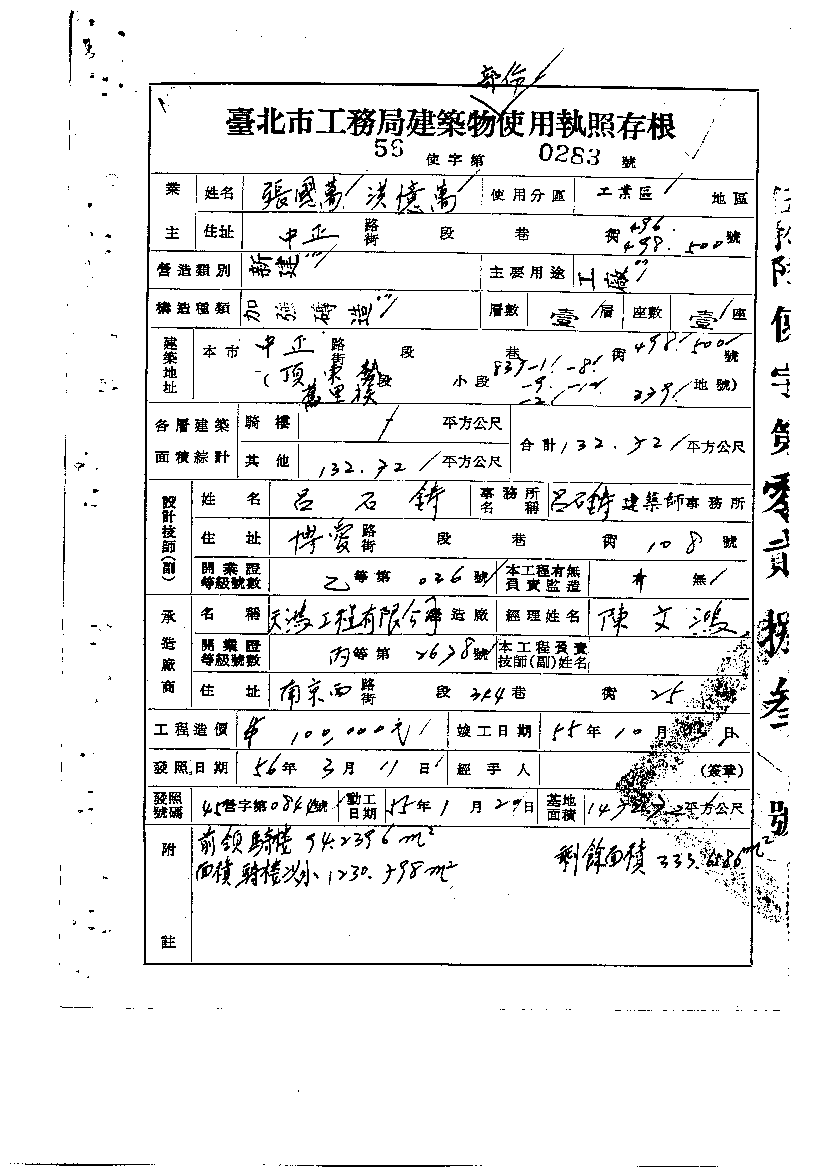 部份
臺北市工務局建築物使用執照存根
56 使字第 0283 號
業主 姓名 張國萬 洪憶萬 使用分區 工業區 地區
住址 中正 路街 段 巷 衖 496. 498. 500 號
營造類別 新建 主要用途 工廠
構造種類 加強磚造 層數 壹 層 座數 壹 座
建築地址 本市 中正 路街 段 巷 衖 498. 500 號
(頂東勢 段 小段 837-1. -8. 339. 地號)
各層建築面積綜計 騎樓 / 平方公尺 合計 132.72 平方公尺
其他 132.72 平方公尺
設計技師(副) 姓名 呂石鑄 事務所名稱 呂石鑄建築師事務所
住址 博愛 路街 段 巷 衖 108 號
開業證等級號數 乙等第 026 號 本工程有無負責監造 有 無
承造廠商 名稱 天鴻工程有限公司 營造廠 經理姓名 陳文鴻
開業證等級號數 丙等第 2638 號 本工程負責技師(副)姓名
住址 南京西 路街 段 344 巷 衖 25 號
工程造價 100,000元 竣工日期 55年10月 日
發照日期 56年3月11日 經手人 (簽章)
發照號碼 45營字第0844號 動工日期 55年1月29日 基地面積 平方公尺
附註 前領騎樓 94.2396 m²
面積騎樓減小 1230.798 m² 剩餘面積
使字第零貳捌叁號